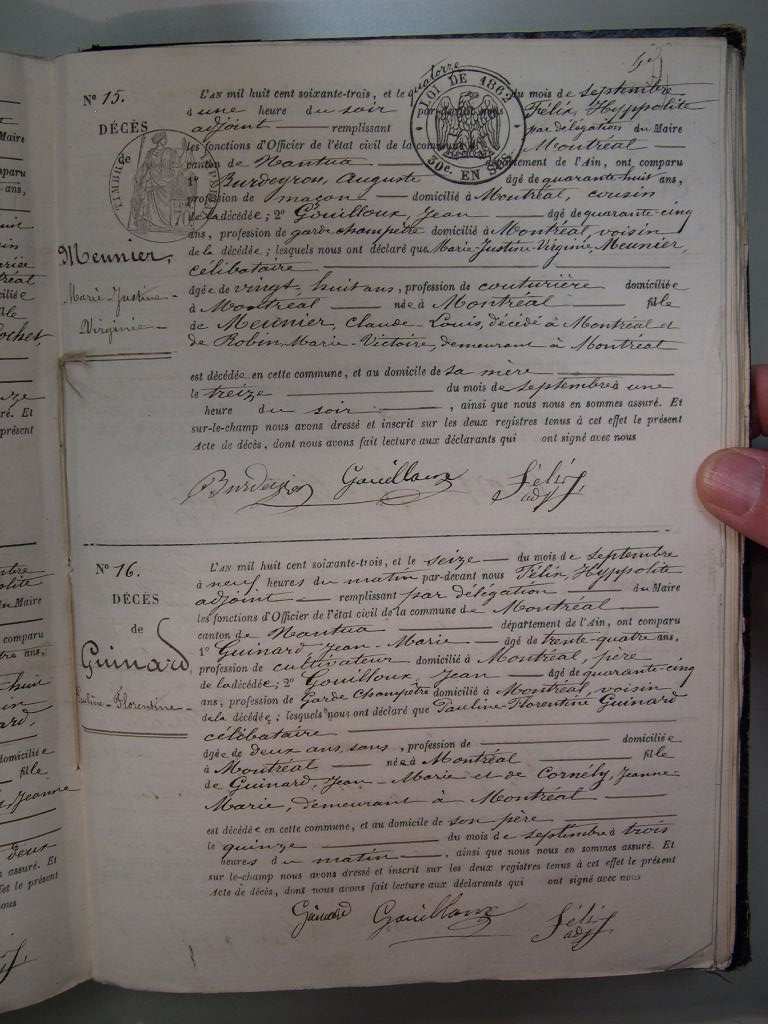 N° 15.
DÉCÈS
de
Meunier,
Marie-Justine-
Virginie
L'AN mil huit cent soixante-trois, et le quatorze du mois de septembre
à une heure du soir par-devant nous Félix, Hyppolite
adjoint remplissant par délégation du Maire
les fonctions d'Officier de l'état civil de la commune de Montréal
canton de Nantua département de l'Ain, ont comparu
1° Burdeyron, Auguste âgé de quarante huit ans,
profession de maçon domicilié à Montréal, cousin
de la décédée; 2° Gouilloux, Jean âgé de quarante-cinq
ans, profession de garde champêtre domicilié à Montréal, voisin
de la décédée; lesquels nous ont déclaré que Marie-Justine-Virginie, Meunier,
célibataire
âgée de vingt-huit ans, profession de couturière domiciliée
à Montréal née à Montréal fille
de Meunier, Claude-Louis, décédé à Montréal et
de Robin, Marie-Victoire, demeurant à Montréal
est décédée en cette commune, et au domicile de sa mère
le treize du mois de septembre à une
heure du soir, ainsi que nous nous en sommes assuré. Et
sur-le-champ nous avons dressé et inscrit sur les deux registres tenus à cet effet le présent
Acte de décès, dont nous avons fait lecture aux déclarants qui ont signé avec nous
Gouilloux Félix
adj
LOI DE 1862
50c. EN SUS
TIMBRE
N° 16.
DÉCÈS
de
Guinard,
Pauline-Florentine-
L'AN mil huit cent soixante-trois, et le seize du mois de septembre
à neuf heures du matin par-devant nous Félix, Hyppolite
adjoint remplissant par délégation du Maire
les fonctions d'Officier de l'état civil de la commune de Montréal
canton de Nantua département de l'Ain, ont comparu
1° Guinard, Jean-Marie âgé de trente-quatre ans,
profession de cultivateur domicilié à Montréal, père
de la décédée; 2° Gouilloux, Jean âgé de quarante-cinq
ans, profession de Garde champêtre domicilié à Montréal, voisin
de la décédée; lesquels nous ont déclaré que Pauline-Florentine Guinard
célibataire
âgée de deux ans, sans, profession de domiciliée
à Montréal née à Montréal fille
de Guinard, Jean-Marie et de Cornély, Jeanne-
Marie, demeurant à Montréal
est décédée en cette commune, et au domicile de son père
le quinze du mois de septembre à trois
heures du matin, ainsi que nous nous en sommes assuré. Et
sur-le-champ nous avons dressé et inscrit sur les deux registres tenus à cet effet le présent
Acte de décès, dont nous avons fait lecture aux déclarants qui ont signé avec nous
Guinard Gouilloux Félix
adj